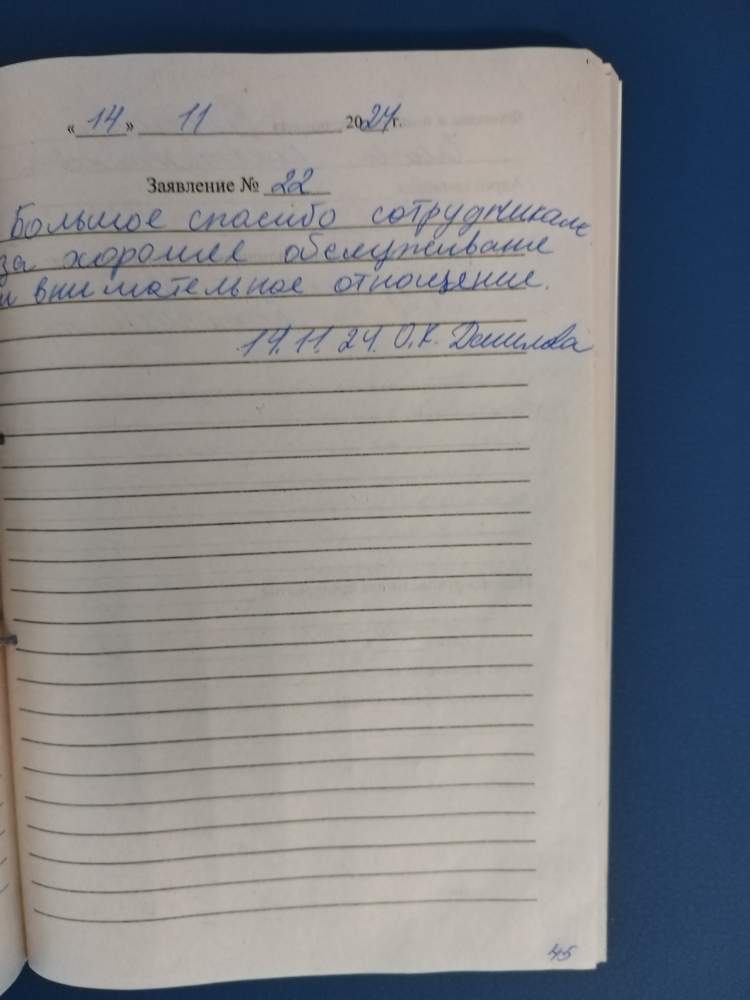 « 14 » 11 2024г.
Заявление № 22
Большое спасибо сотрудникам
за хорошее обслуживание
и внимательное отношение.
14.11.24. О.К. Данилова
45